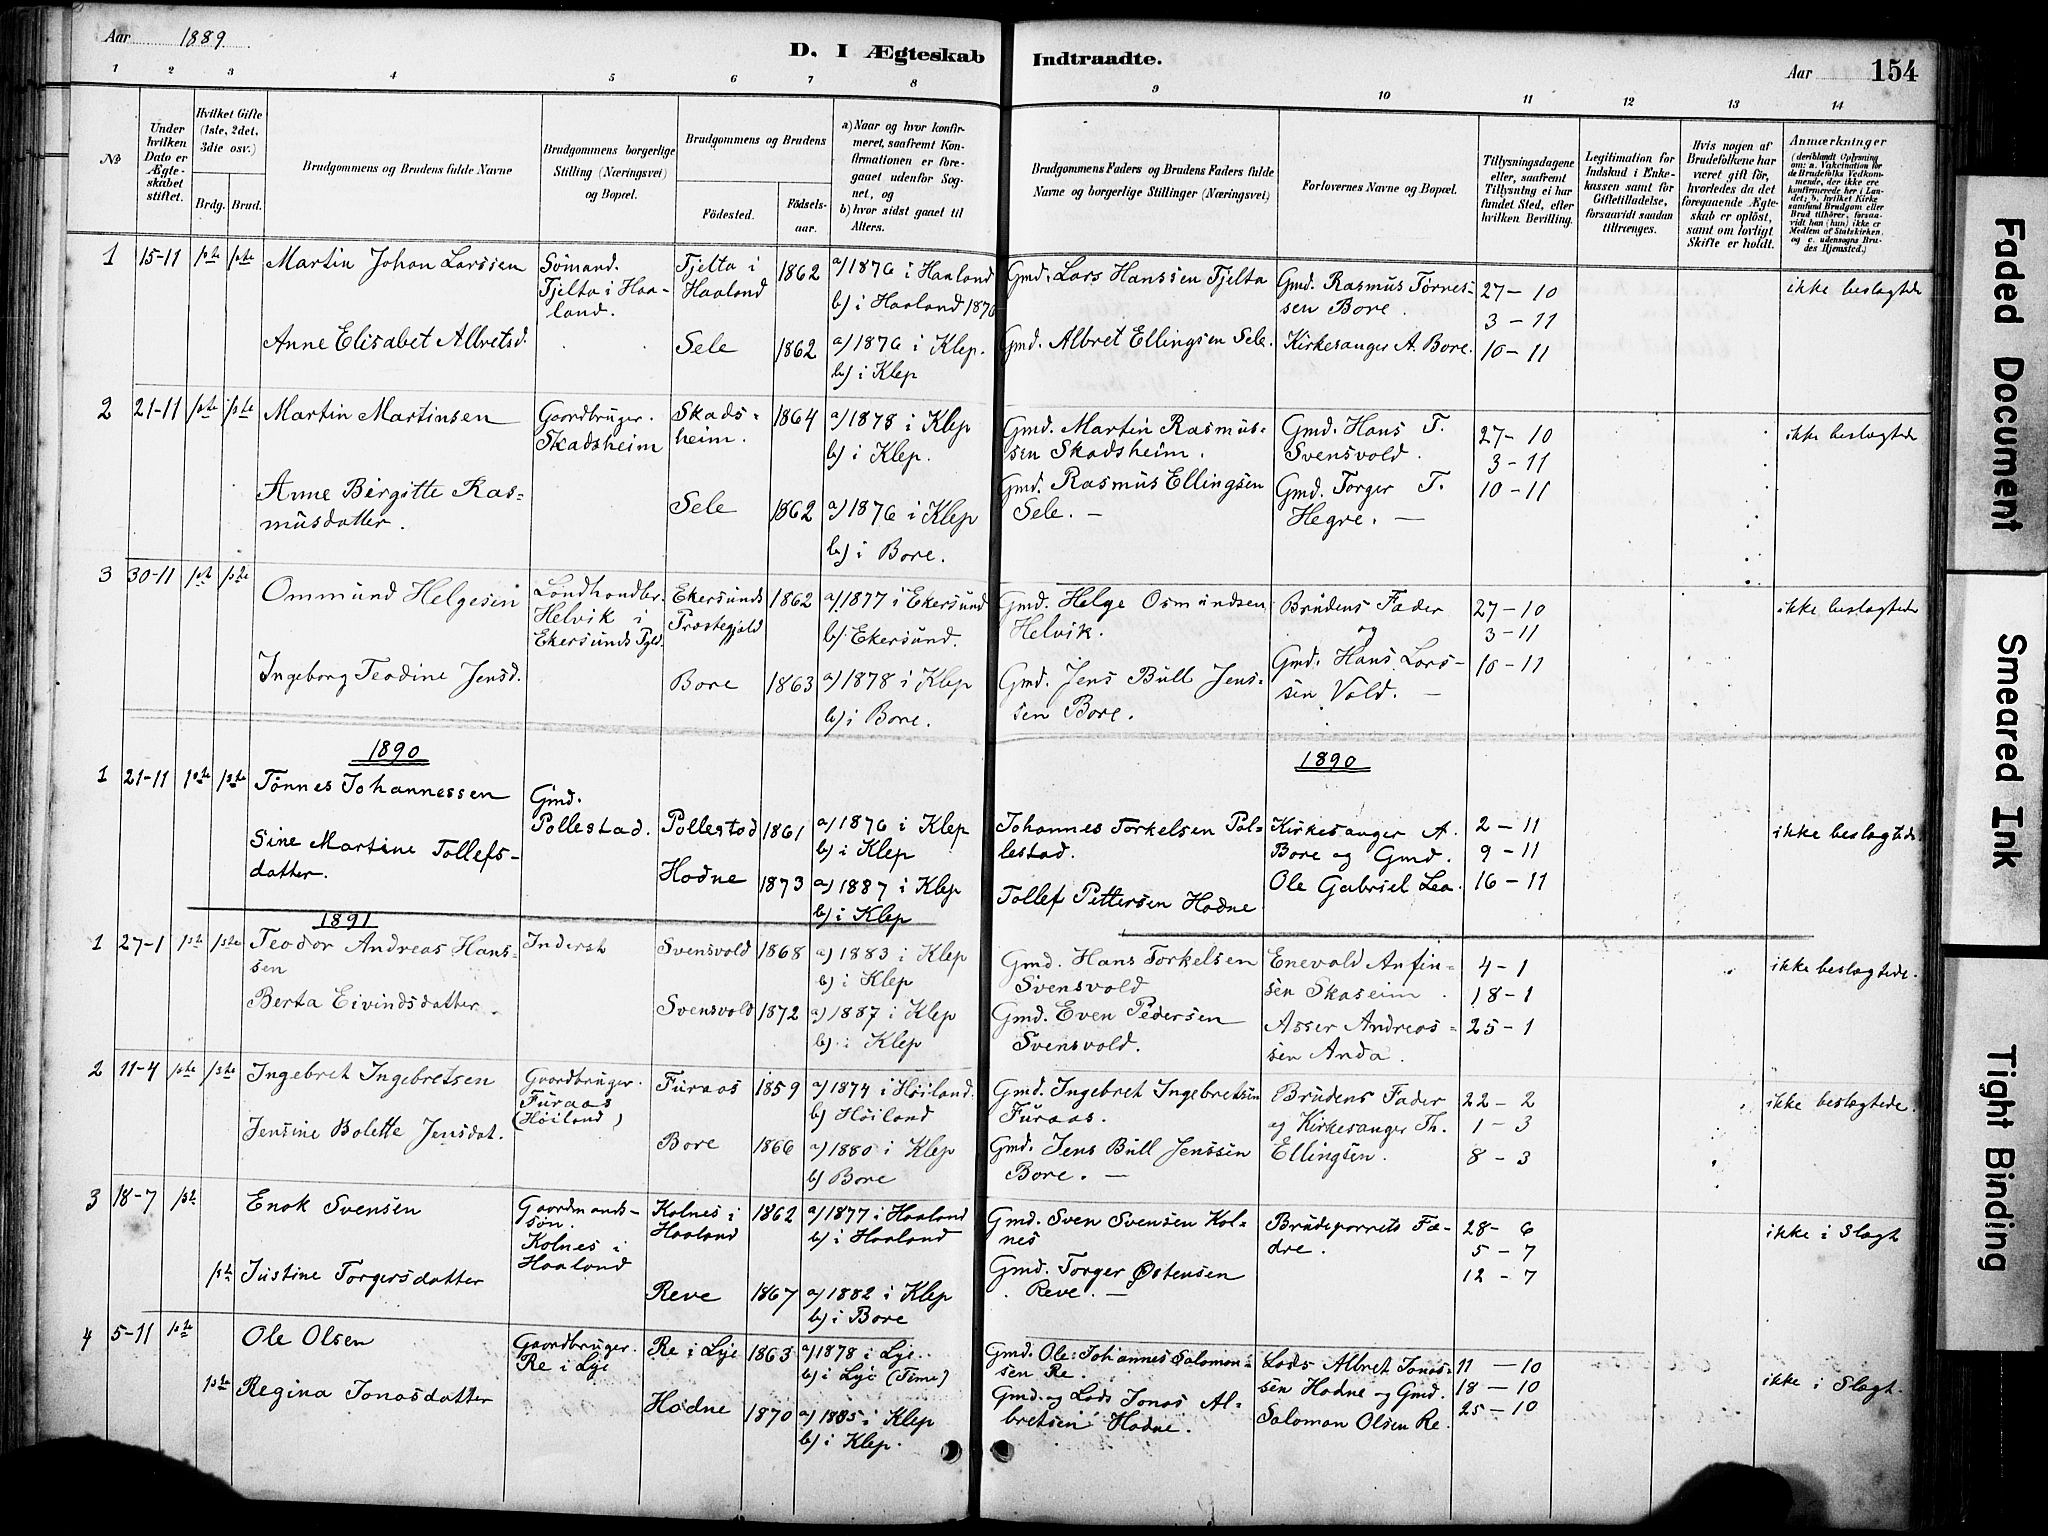 Aar 1889
D. I Ægteskab Indtraadte.
Aar 154
1 2 3 4 5 6 7 8 9 10 11 12 13 14
No.
Under hvilken Dato er Ægteskabet stiftet.
Hvilket Gifte (1ste, 2det, 3die osv.)
Brdg. Brud.
Brudgommens og Brudens fulde Navne
Brudgommens borgerlige Stilling (Næringsvei) og Bopæl.
Brudgommens og Brudens
Fødested.
Fødselsaar.
a) Naar og hvor konfirmeret, saafremt Konfirmationen er foregaaet udenfor Sognet, og
b) hvor sidst gaaet til Alters.
Brudgommens Faders og Brudens Faders fulde Navne og borgerlige Stillinger (Næringsvei)
Forlovernes Navne og Bopæl.
Tillysningsdagene eller, saafremt Tillysning ei har fundet Sted, efter hvilken Bevilling.
Legitimation for Indskud i Enkekassen samt for Giftetilladelse, forsaavidt saadan tiltrænges.
Hvis nogen af Brudefolkene har været gift før, hvorledes da det foregaaende Ægteskab er opløst, samt om lovligt Skifte er holdt.
Anmærkninger (deriblandt Oplysning om: a. Vakcination for de Brudefolks Vedkommende, der ikke ere konfirmerede her i Landet; b. hvilket Kirkesamfund Brudgom eller Brud tilhører, forsaavidt han (hun) ikke er Medlem af Statskirken, og c. udensogns Brudes Hjemsted.)
1 15-11 1ste 1ste Martin Johan Larssen Sømand. Tjelta i Haaland. Tjelta i Haaland 1862 a) 1876 i Haaland b) i Haaland 1876 Gmd. Lars Hanssen Tjelta Gmd. Rasmus Tørnessen Bore. 27-10 3-11 10-11 ikke beslagtede
Anne Elisabet Albretsd. Sele 1862 a) 1876 i Klep. b) i Klep Gmd. Albret Ellingsen Sele. Kirkesanger A. Bore.
2 21-11 1ste 1ste Martin Martinsen Gaardbruger. Skadsheim Skadsheim. 1864 a) 1878 i Klep b) i Klep. Gmd. Martin Rasmussen Skadsheim. Gmd. Hans T. Svensvold. 27-10 3-11 10-11 ikke beslagtede
Anne Birgitte Rasmusdatter. Sele 1862 a) 1876 i Klep b) i Bore. Gmd. Rasmus Ellingsen Sele. — Gmd. Torger T. Hegre. —
3 30-11 1ste 1ste Ommund Helgesen Landhandler. Helvik i Ekersunds Pgld. Ekersunds Præstegjæld 1862 a) 1877 i Ekersund b) Ekersund. Gmd. Helge Osmundsen Helvik. Brudens Fader og Gmd. Hans Larssen Vold. — 27-10 3-11 10-11 ikke beslagtede
Ingeborg Teodine Jensd. Bore 1863 a) 1878 i Klep b) i Bore. Gmd. Jens Bull Jenssen Bore.
1890 1890
1 21-11 1ste 1ste Tønnes Johannessen Gmd. Pollestad. Pollestad 1861 a) 1876 i Klep b) i Klep Johannes Torkelsen Pollestad. Kirkesanger A. Bore og Gmd. Ole Gabriel Lea. 2-11 9-11 16-11 ikke beslagtede
Sine Martine Tollefsdatter. Hodne 1873 a) 1887 i Klep b) i Klep Tollef Pettersen Hodne
1891
1 27-1 1ste 1ste Teodor Andreas Hanssen Inderst Svensvold 1868 a) 1883 i Klep b) i Klep Gmd. Hans Torkelsen Svensvold Enevald Anfinsen Skaseim. 4-1 18-1 25-1 ikke beslagtede.
Berta Eivindsdatter Svensvold 1872 a) 1887 i Klep b) i Klep Gmd. Even Pedersen Svensvold. Asser Andreassen Anda.
2 11-4 1ste 1ste Ingebret Ingebretsen Gaardbruger. Furaas (Høiland) Furaas 1859 a) 1874 i Høiland. b) Høiland Gmd. Ingebret Ingebretsen Furaas. Brudens Fader og Kirkesanger Th. Ellingsen. 22-2 1-3 8-3 ikke beslagtede.
Jensine Bolette Jensdat. Bore 1866 a) 1880 i Klep b) Bore Gmd. Jens Bull Jenssen Bore. —
3 18-7 1ste Enok Svensen Gaardmandssøn. Kolnes i Haaland Kolnes i Haaland 1862 a) 1877 i Haaland b) i Haaland Gmd. Sven Svensen Kolnes Brudeparrets Fædre. 28-6 5-7 12-7 ikke i Slægt
1ste Justine Torgersdatter Reve 1867 a) 1882 i Klep b) i Bore Gmd. Torger Østensen Reve. —
4 5-11 1ste Ole Olsen Gaardbruger. Re i Lye Re i Lye 1863 a) 1878 i Lye. b) i Lye (Time) Gmd. Ole Johannes Salomonsen Re. Lods Albret Jonassen Hodne og Gmd. Salomon Olsen Re. 11-10 18-10 25-10 ikke i Slægt.
1ste Regina Jonasdatter Hodne 1870 a) 1885 i Klep b) i Klep. Gmd. og Lods Jonas Albretsen Hodne.
Faded Document
Smeared Ink
Tight Binding